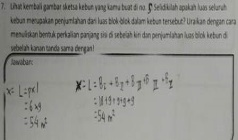 7. Lihat kembali gambar sketsa kebun yang kamu buat di no. 5 Selidikilah apakah luas seluruh
kebun merupakan penjumlahan dari luas blok-blok dalam kebun tersebut? Uraikan dengan cara
menuliskan bentuk perkalian panjang sisi di sebelah kiri dan penjumlahan luas blok kebun di
sebelah kanan tanda sama dengan!
Jawaban:
L = p x l
= 6 x 9
= 54 m²
= 54 m²